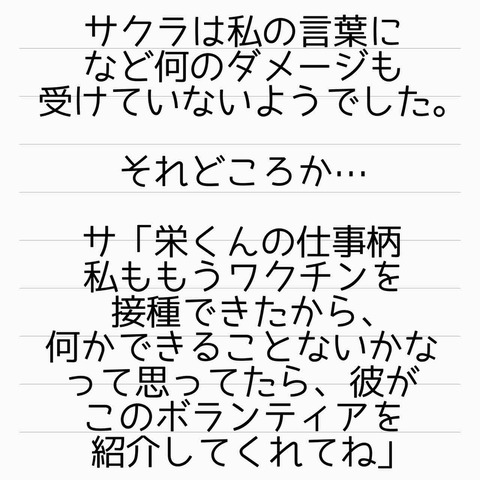 サクラは私の言葉に
など何のダメージも
受けていないようでした。
それどころか…
サ「栄くんの仕事柄
私ももうワクチンを
接種できたから、
何かできることないかな
って思ってたら、彼が
このボランティアを
紹介してくれてね」